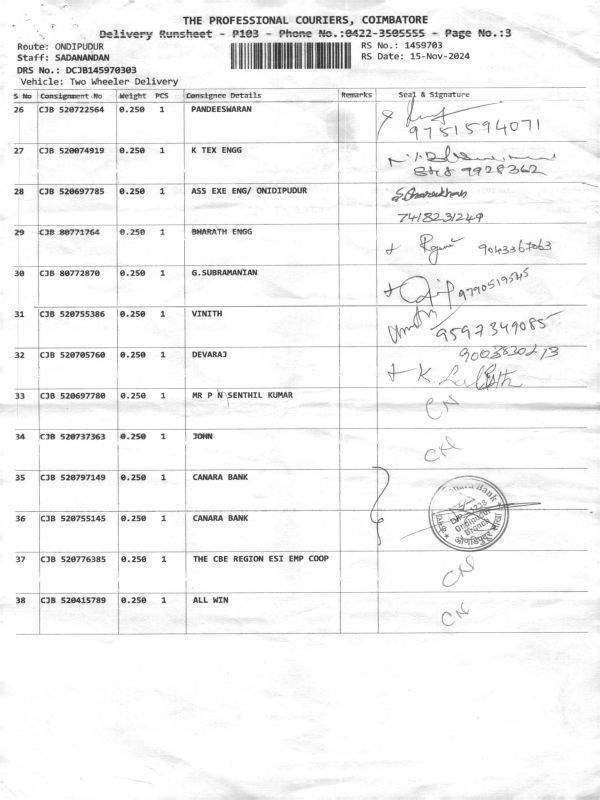 THE PROFESSIONAL COURIERS, COIMBATORE
Delivery Runsheet - P103 - Phone No.:0422-3505555 - Page No.:3
Route: ONDIPUDUR RS No.: 1459703
Staff: SADANANDAN RS Date: 15-Nov-2024
DRS No.: DCJB145970303
Vehicle: Two Wheeler Delivery
S No Consignment No Weight PCS Consignee Details Remarks Seal & Signature
26 CJB 520722564 0.250 1 PANDEESWARAN
9751594071
27 CJB 520074919 0.250 1 K TEX ENGG
28 CJB 520697785 0.250 1 ASS EXE ENG/ ONIDIPUDUR
7418231249
29 CJB 80771764 0.250 1 BHARATH ENGG
9043367063
30 CJB 80772870 0.250 1 G.SUBRAMANIAN
9790519545
31 CJB 520755386 0.250 1 VINITH
9597349085
32 CJB 520705760 0.250 1 DEVARAJ
9003830213
33 CJB 520697780 0.250 1 MR P N SENTHIL KUMAR CN
34 CJB 520737363 0.250 1 JOHN CN
35 CJB 520797149 0.250 1 CANARA BANK
36 CJB 520755145 0.250 1 CANARA BANK
Canara Bank
Ondipudur
Branch
37 CJB 520776385 0.250 1 THE CBE REGION ESI EMP COOP CN
38 CJB 520415789 0.250 1 ALL WIN CN